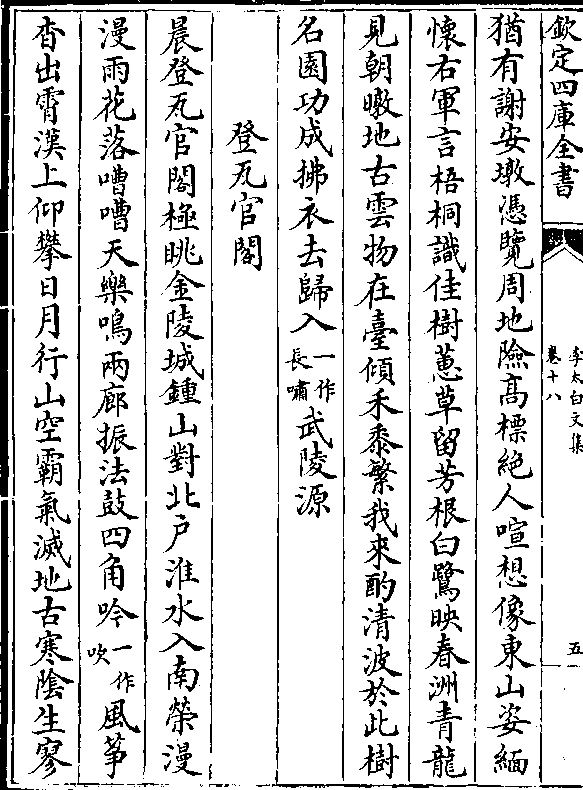 欽定四庫全書
李太白文集
卷十八
五
猶有謝安墩憑覽周地險高標絕人喧想像東山姿緬
懷右軍言梧桐識佳樹蕙草留芳根白鷺映春洲青龍
見朝暾地古雲物在臺傾禾黍繁我來酌清波於此樹
名園功成拂衣去歸入一作長嘯武陵源
登瓦官閣
晨登瓦官閣極眺金陵城鍾山對北户淮水入南榮漫
漫雨花落嘈嘈天樂鳴兩廊振法鼓四角吟一作吹風筝
杳出霄漢上仰攀日月行山空霸氣滅地古寒陰生寥